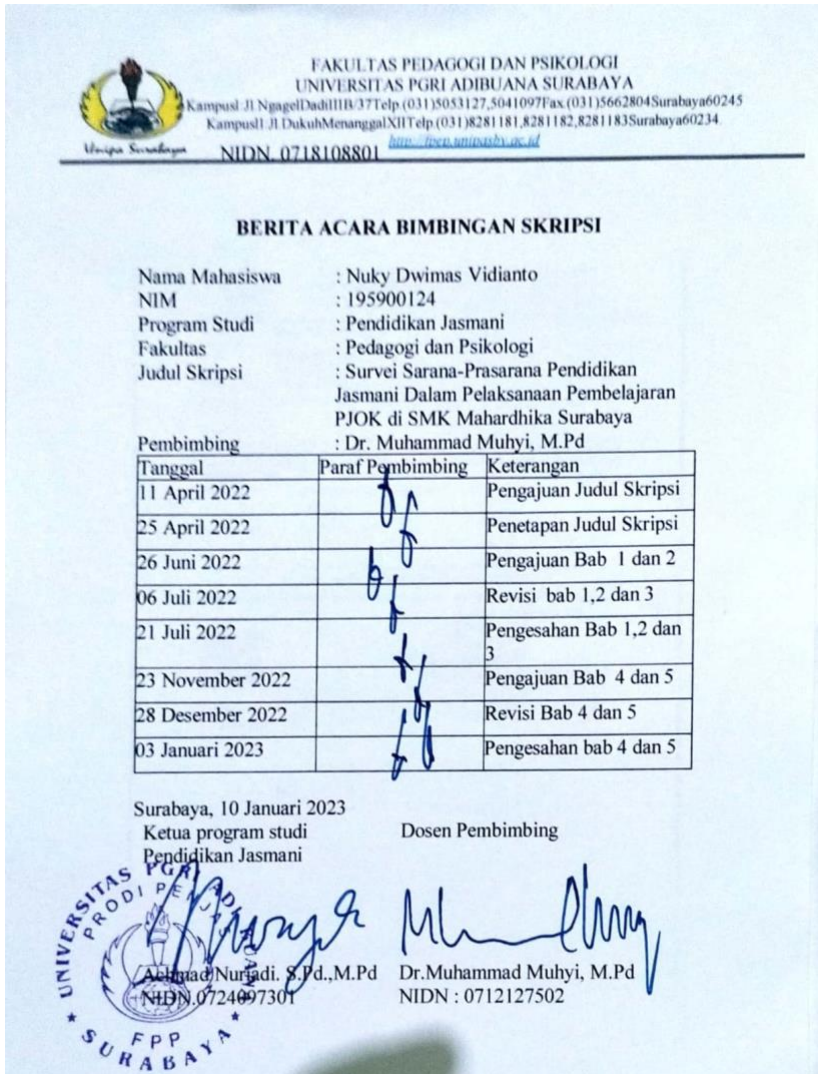 FAKULTAS PEDAGOGI DAN PSIKOLOGI
UNIVERSITAS PGRI ADIBUANA SURABAYA
KampusI Jl.NgagelDadiIIIB/37Telp.(031)5053127,5041097Fax.(031)5662804Surabaya60245
KampusII Jl.DukuhMenanggalXIITelp.(031)8281181,8281182,8281183Surabaya60234.
http://fpp.unipasby.ac.id
Unipa Surabaya
NIDN. 0718108801
BERITA ACARA BIMBINGAN SKRIPSI
Nama Mahasiswa : Nuky Dwimas Vidianto
NIM : 195900124
Program Studi : Pendidikan Jasmani
Fakultas : Pedagogi dan Psikologi
Judul Skripsi : Survei Sarana-Prasarana Pendidikan
Jasmani Dalam Pelaksanaan Pembelajaran
PJOK di SMK Mahardhika Surabaya
Pembimbing : Dr. Muhammad Muhyi, M.Pd
Tanggal Paraf Pembimbing Keterangan
11 April 2022 Pengajuan Judul Skripsi
25 April 2022 Penetapan Judul Skripsi
26 Juni 2022 Pengajuan Bab 1 dan 2
06 Juli 2022 Revisi bab 1,2 dan 3
21 Juli 2022 Pengesahan Bab 1,2 dan
3
23 November 2022 Pengajuan Bab 4 dan 5
28 Desember 2022 Revisi Bab 4 dan 5
03 Januari 2023 Pengesahan bab 4 dan 5
Surabaya, 10 Januari 2023
Ketua program studi Dosen Pembimbing
Pendidikan Jasmani
UNIVERSITAS PGRI ADI
PRODI
FPP
SURABAYA
Achmad Nuriadi. S.Pd.,M.Pd Dr.Muhammad Muhyi, M.Pd
NIDN.0724097301 NIDN : 0712127502